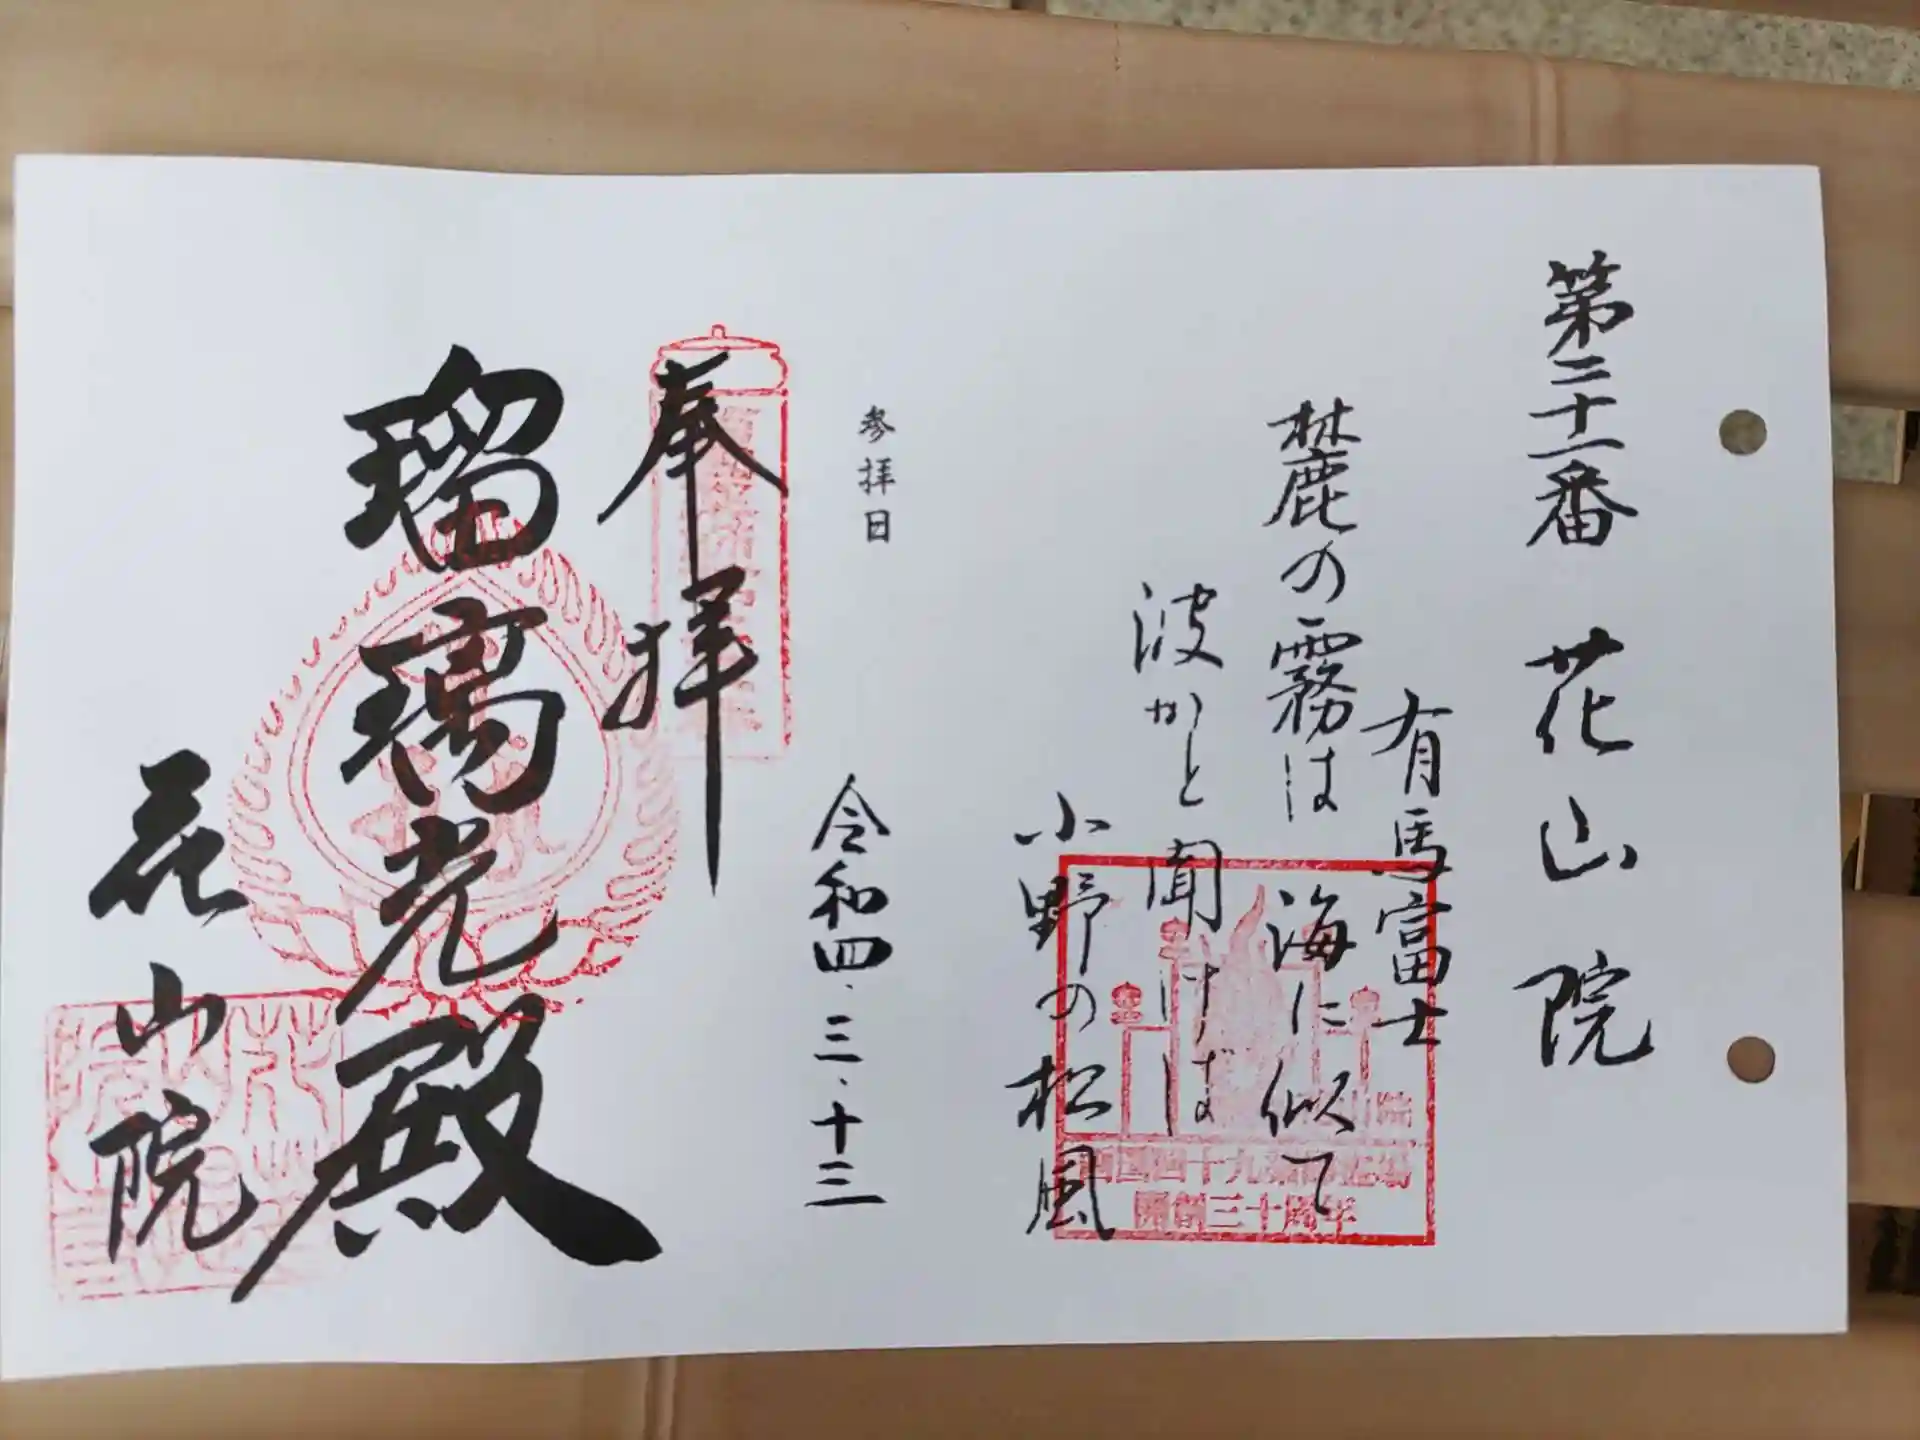 第二十一番 花山院
有馬富士
麓の霧は海に似て
波かと聞けば
小野の松風
参拝日
令和四.三.十三
奉拝
瑠璃光殿
花山院
西国四十九薬師霊場
開創三十周年